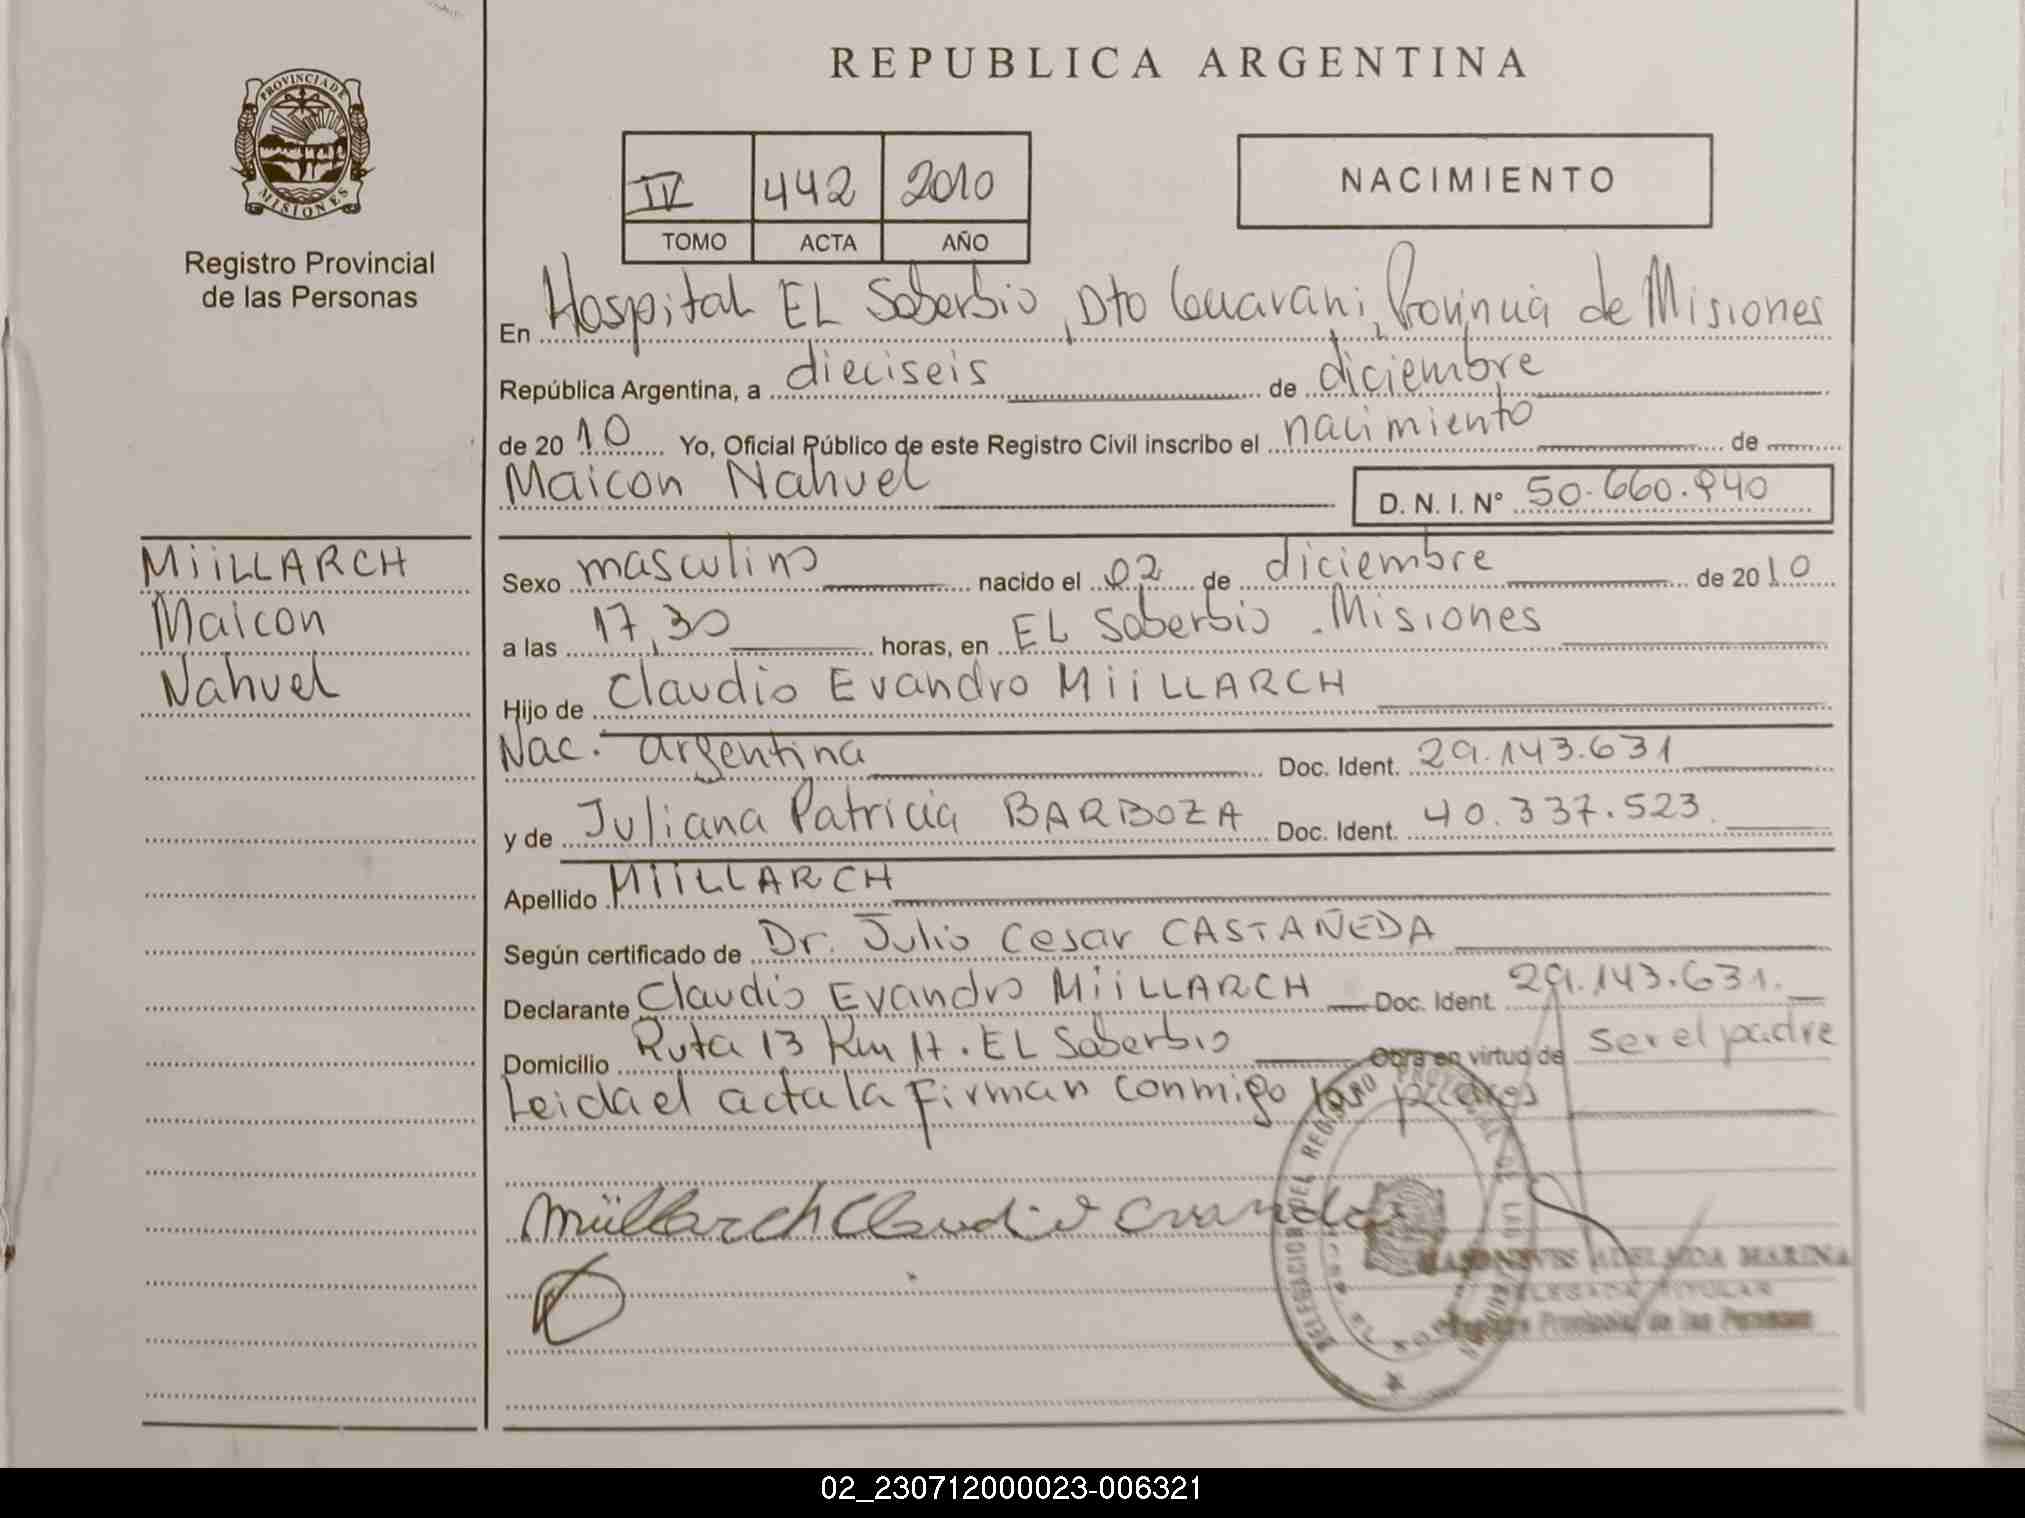 REPUBLICA ARGENTINA
PROVINCIA DE
MISIONES
Registro Provincial
de las Personas
IV 442 2010
TOMO ACTA AÑO
NACIMIENTO
En Hospital EL Soberbio, Dto Guarani, Provincia de Misiones
República Argentina, a dieciseis de diciembre
de 2010 Yo, Oficial Público de este Registro Civil inscribo el nacimiento de
Maicon Nahuel D. N. I. N° 50.660.940
MiiLLARCH
Maicon
Nahuel
Sexo masculino nacido el 02 de diciembre de 2010
a las 17,30 horas, en EL Soberbio . Misiones
Hijo de Claudio Evandro MiiLLARCH
Nac. argentina Doc. Ident. 29.143.631
y de Juliana Patricia BARBOZA Doc. Ident. 40.337.523.
Apellido MiiLLARCH
Según certificado de Dr. Julio Cesar CASTAÑEDA
Declarante Claudio Evandro MiiLLARCH Doc. Ident. 29.143.631.
Domicilio Ruta 13 Km 17. EL Soberbio Obra en virtud de ser el padre
Leida el acta la firman conmigo los padres
Müllarch Claudio Evandro
DELEGACION DEL REGISTRO
ADELAIDA MARINA
DELEGADA TITULAR
Registro Provincial de las Personas
02_230712000023-006321